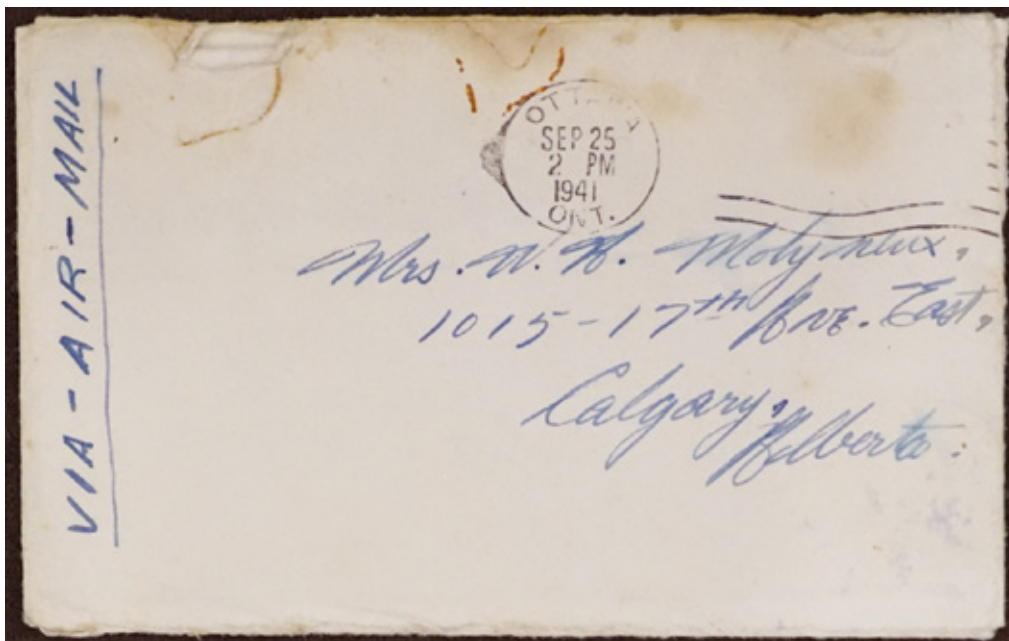 VIA-AIR-MAIL
OTTAWA
SEP 25
2 PM
1941
ONT.
Mrs. W. H. Molyneux,
1015-17th Ave. East,
Calgary,
Alberta.